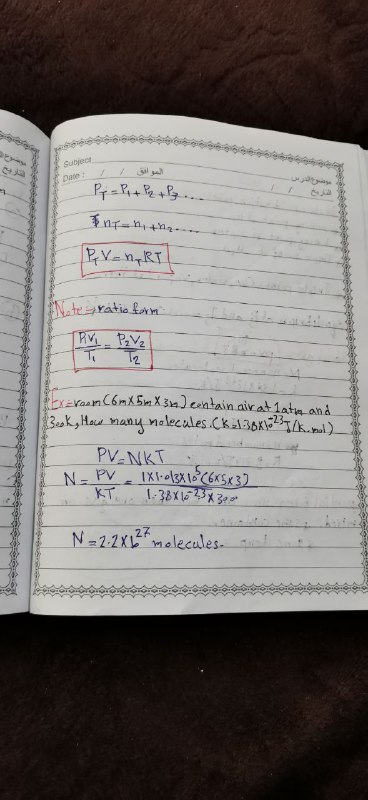 Subject
موضوع الدرس
Date: / / الموافق
/ / التاريخ
P_T = P₁ + P₂ + P₃ ....
n_T = n₁ + n₂ ....
P_T V = n_T RT
Note ⇒ ratio form
P₁V₁/T₁ = P₂V₂/T₂
Ex = room (6m×5m×3m) contain air at 1atm and
300k, How many molecules. (k=1.38×10⁻²³ J/k.mol)
PV = NKT
N = PV/KT = 1×1.013×10⁵(6×5×3)/1.38×10⁻²³×300
N = 2.2×10²⁷ molecules.